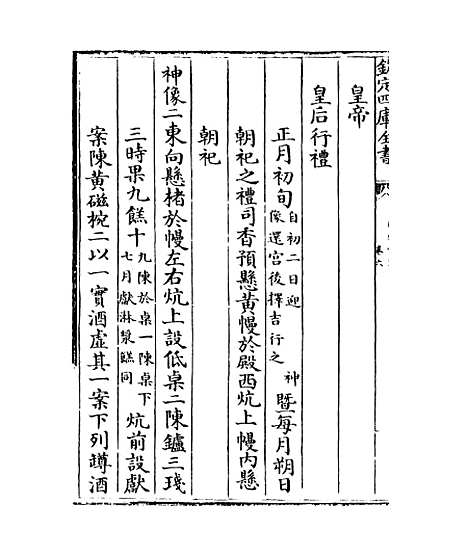 欽定四庫全書
皇帝
皇后行禮
正月初旬自初二日迎神像還宮後擇吉行之暨每月朔日
朝祀之禮司香預懸黃幔於殿西炕上幔內懸
朝祀
神像二東向懸楮於幔左右炕上設低桌二陳鑪三琖
三時果九餻十九陳於桌一陳桌下七月獻淋漿餻同炕前設獻
案陳黃磁椀二以一實酒虛其一案下列罇酒